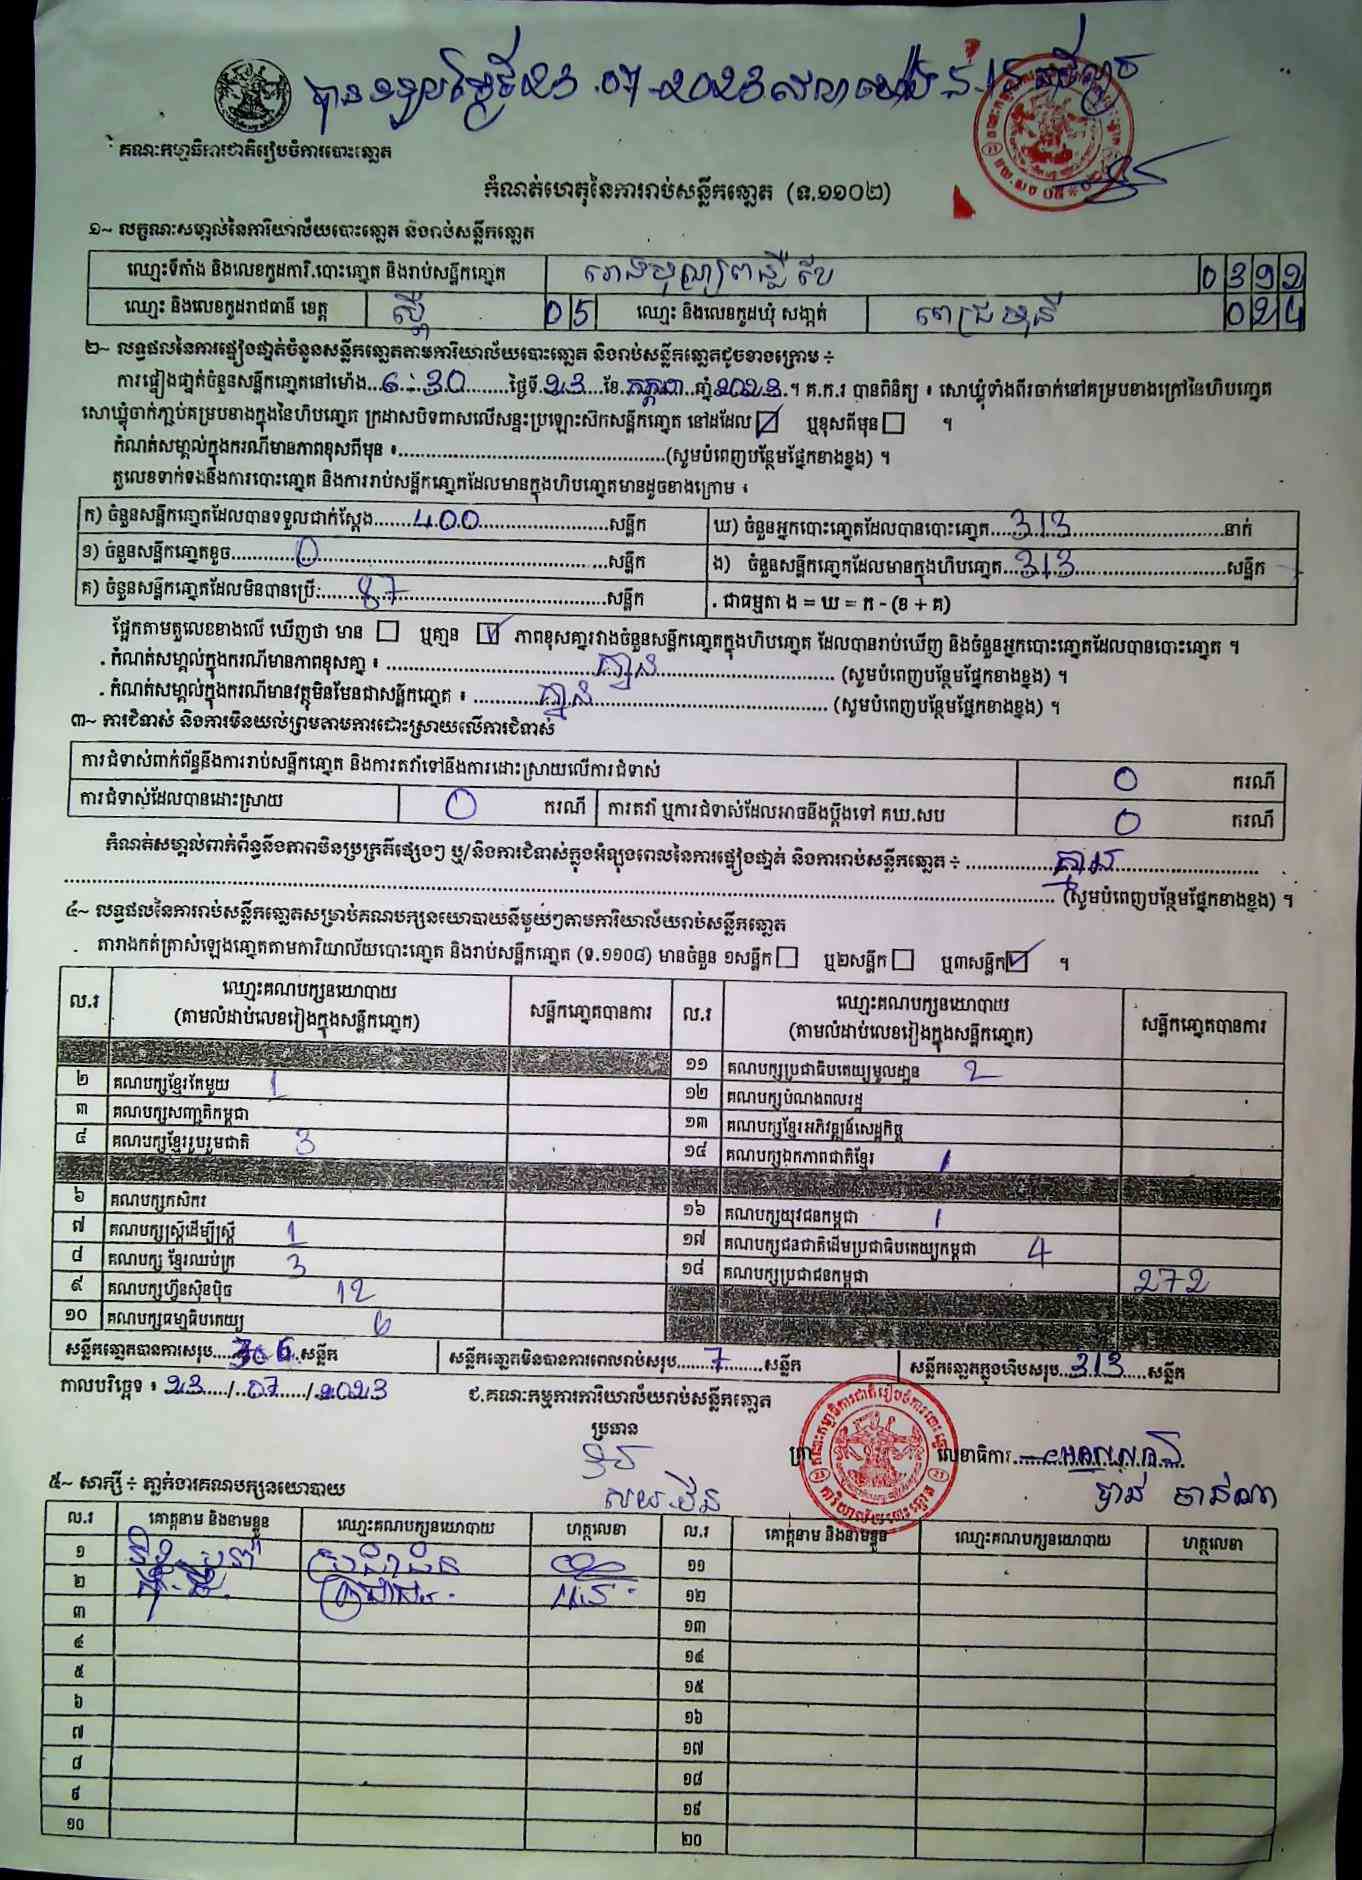 បានទទួលថ្ងៃទី23.07.2023
គណៈកម្មាធិការជាតិរៀបចំការបោះឆ្នោត
កំណត់ហេតុនៃការរាប់សន្លឹកឆ្នោត (ទ.១១០២)
១~ លក្ខណៈសម្គាល់នៃការិយាល័យបោះឆ្នោត និងរាប់សន្លឹកឆ្នោត
ឈ្មោះទីតាំង និងលេខកូដការិ.បោះឆ្នោត និងរាប់សន្លឹកឆ្នោត 0392
ឈ្មោះ និងលេខកូដរាជធានី ខេត្ត 05 ឈ្មោះ និងលេខកូដឃុំ សង្កាត់ ពេជ្រមុនី 024
២~ លទ្ធផលនៃការផ្ទៀងផ្ទាត់ចំនួនសន្លឹកឆ្នោតតាមការិយាល័យបោះឆ្នោត និងរាប់សន្លឹកឆ្នោតដូចខាងក្រោម ÷
ការផ្ទៀងផ្ទាត់ចំនួនសន្លឹកឆ្នោតនៅម៉ោង...6:30......ថ្ងៃទី.23.ខែ.កក្កដា.ឆ្នាំ2023.។ គ.ក.រ បានពិនិត្យ ៖ សោឃ្លុំទាំងពីរចាក់នៅគម្របខាងក្រៅនៃហិបឆ្នោត
សោឃ្លុំចាក់ភ្ជាប់គម្របខាងក្នុងនៃហិបឆ្នោត ក្រដាសបិទពាសលើសន្ទះប្រឡោះស៊កសន្លឹកឆ្នោត នៅដដែល ☑ ឬខុសពីមុន ☐ ។
កំណត់សម្គាល់ក្នុងករណីមានភាពខុសពីមុន ៖..........(សូមបំពេញបន្ថែមផ្នែកខាងខ្នង) ។
តួលេខទាក់ទងនឹងការបោះឆ្នោត និងការរាប់សន្លឹកឆ្នោតដែលមានក្នុងហិបឆ្នោតមានដូចខាងក្រោម ៖
ក) ចំនួនសន្លឹកឆ្នោតដែលបានទទួលជាក់ស្តែង........400..........សន្លឹក ឃ) ចំនួនអ្នកបោះឆ្នោតដែលបានបោះឆ្នោត...313..........នាក់
ខ) ចំនួនសន្លឹកឆ្នោតខូច..........0..........សន្លឹក ង) ចំនួនសន្លឹកឆ្នោតដែលមានក្នុងហិបឆ្នោត...313..........សន្លឹក
គ) ចំនួនសន្លឹកឆ្នោតដែលមិនបានប្រើ:..........87..........សន្លឹក . ជាធម្មតា ង = ឃ = ក - (ខ + គ)
ផ្អែកតាមតួលេខខាងលើ ឃើញថា មាន ☐ ឬគ្មាន ☑ ភាពខុសគ្នារវាងចំនួនសន្លឹកឆ្នោតក្នុងហិបឆ្នោត ដែលបានរាប់ឃើញ និងចំនួនអ្នកបោះឆ្នោតដែលបានបោះឆ្នោត ។
. កំណត់សម្គាល់ក្នុងករណីមានភាពខុសគ្នា ៖ ..........គ្មាន.......... (សូមបំពេញបន្ថែមផ្នែកខាងខ្នង) ។
. កំណត់សម្គាល់ក្នុងករណីមានវត្ថុមិនមែនជាសន្លឹកឆ្នោត ៖ ..........គ្មាន.......... (សូមបំពេញបន្ថែមផ្នែកខាងខ្នង) ។
៣~ ការជំទាស់ និងការមិនយល់ព្រមតាមការដោះស្រាយលើការជំទាស់
ការជំទាស់ពាក់ព័ន្ធនឹងការរាប់សន្លឹកឆ្នោត និងការតវ៉ាទៅនឹងការដោះស្រាយលើការជំទាស់ 0 ករណី
ការជំទាស់ដែលបានដោះស្រាយ 0 ករណី ការតវ៉ា ឬការជំទាស់ដែលអាចនឹងប្តឹងទៅ គឃ.សប 0 ករណី
កំណត់សម្គាល់ពាក់ព័ន្ធនឹងភាពមិនប្រក្រតីផ្សេងៗ ឬ/និងការជំទាស់ក្នុងអំឡុងពេលនៃការផ្ទៀងផ្ទាត់ និងការរាប់សន្លឹកឆ្នោត ÷ ..........គ្មាន..........
.......... (សូមបំពេញបន្ថែមផ្នែកខាងខ្នង) ។
៤~ លទ្ធផលនៃការរាប់សន្លឹកឆ្នោតសម្រាប់គណបក្សនយោបាយនីមួយៗតាមការិយាល័យរាប់សន្លឹកឆ្នោត
តារាងកត់ត្រាសំឡេងឆ្នោតតាមការិយាល័យបោះឆ្នោត និងរាប់សន្លឹកឆ្នោត (ទ.១១០៨) មានចំនួន ១សន្លឹក ☐ ឬ២សន្លឹក ☐ ឬ៣សន្លឹក ☑ ។
ល.រ ឈ្មោះគណបក្សនយោបាយ (តាមលំដាប់លេខរៀងក្នុងសន្លឹកឆ្នោត) សន្លឹកឆ្នោតបានការ ល.រ ឈ្មោះគណបក្សនយោបាយ (តាមលំដាប់លេខរៀងក្នុងសន្លឹកឆ្នោត) សន្លឹកឆ្នោតបានការ
១១ គណបក្សប្រជាធិបតេយ្យមូលដ្ឋាន 2
២ គណបក្សខ្មែរតែមួយ 1 ១២ គណបក្សបំណងពលរដ្ឋ
៣ គណបក្សសញ្ជាតិកម្ពុជា ១៣ គណបក្សខ្មែរអភិវឌ្ឍន៍សេដ្ឋកិច្ច
៤ គណបក្សខ្មែររួបរួមជាតិ 3 ១៤ គណបក្សឯកភាពជាតិខ្មែរ 1
៦ គណបក្សកសិករ ១៦ គណបក្សយុវជនកម្ពុជា 1
៧ គណបក្សស្ត្រីដើម្បីស្ត្រី 1 ១៧ គណបក្សជនជាតិដើមប្រជាធិបតេយ្យកម្ពុជា 4
៨ គណបក្ស ខ្មែរឈប់ក្រ 3 ១៨ គណបក្សប្រជាជនកម្ពុជា 272
៩ គណបក្សហ៊្វុនស៊ិនប៉ិច 12
១០ គណបក្សធម្មាធិបតេយ្យ 6
សន្លឹកឆ្នោតបានការសរុប....306..សន្លឹក សន្លឹកឆ្នោតមិនបានការពេលរាប់សរុប.......7.......សន្លឹក សន្លឹកឆ្នោតក្នុងហិបសរុប..313......សន្លឹក
កាលបរិច្ឆេទ ៖ 23..../..07....../.2023 ជ.គណៈកម្មការការិយាល័យរាប់សន្លឹកឆ្នោត
ប្រធាន
ត្រា លេខាធិការ
៥~ សាក្សី ÷ ភ្នាក់ងារគណបក្សនយោបាយ
ល.រ គោត្តនាម និងនាមខ្លួន ឈ្មោះគណបក្សនយោបាយ ហត្ថលេខា ល.រ គោត្តនាម និងនាមខ្លួន ឈ្មោះគណបក្សនយោបាយ ហត្ថលេខា
១ ១១
២ ១២
៣ ១៣
៤ ១៤
៥ ១៥
៦ ១៦
៧ ១៧
៨ ១៨
៩ ១៩
១០ ២០